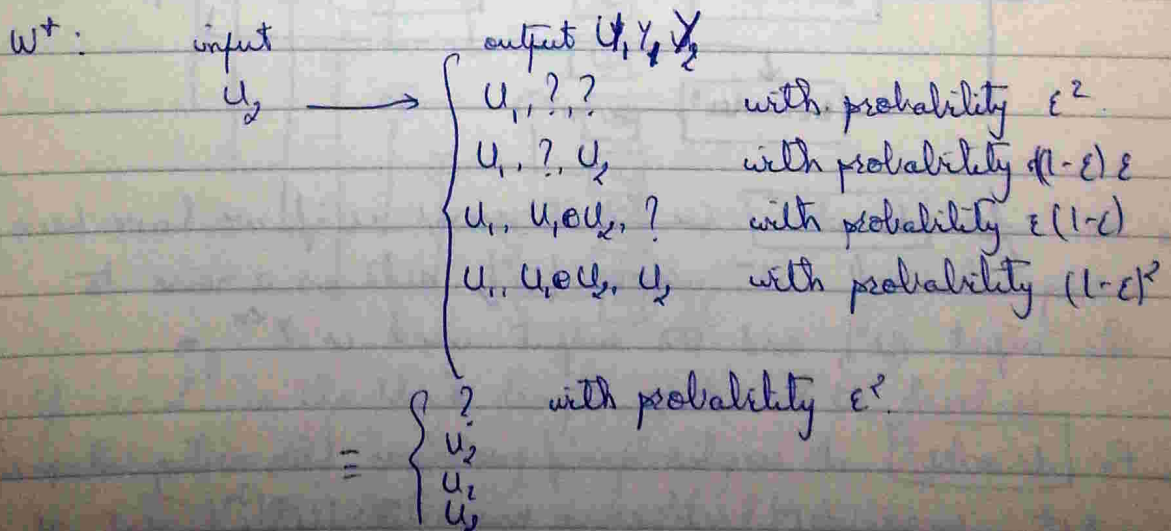 W⁺: input output U₁Y₁Y₂
U₂ → U₁, ?, ? with probability ε².
U₁, ?, U₂ with probability (1-ε) ε
U₁, U₁⊕U₂, ? with probability ε(1-ε)
U₁, U₁⊕U₂, U₂ with probability (1-ε)²
? with probability ε².
≡ U₂
U₂
U₂